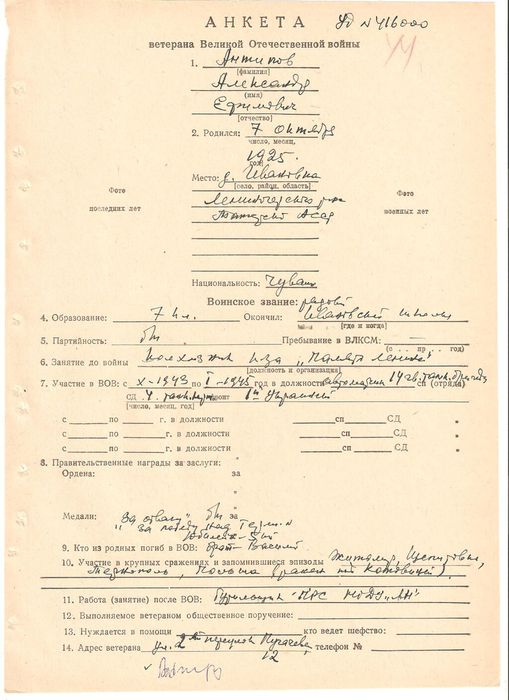 АНКЕТА Уд № 416000
ветерана Великой Отечественной войны
1. Антипов
[фамилия]
Александр
(имя)
Ефимович
[отчество]
2. Родился: 7 октября
число, месяц,
1925.
год
Место: д. Ивановка
[село, район, область]
Лениногорского р-на
Татарской АССР
Фото
последних лет
Фото
военных лет
Национальность: Чуваш
Воинское звание: рядовой
4. Образование: 7 кл. Окончил: Ивановской школы
[где и когда]
5. Партийность: бп Пребывание в ВЛКСМ: —
(с . . пр . . год)
6. Занятие до войны колхозник к-за "Память Ленина"
[должность и организация]
7. Участие в ВОВ: с X-1943 по I-1945 год в должности автоматчик 14 гв. танк. бригады сп (отряда)
СД 4 танк. фронт 1й Украинский
[число, месяц, год]
с по г. в должности сп СД
с по г. в должности сп СД
с по г. в должности сп СД
8. Правительственные награды за заслуги:
Ордена: за
"
"
Медали: "За отвагу" за
"За победу над Герм."
9. Кто из родных погиб в ВОВ: брат Василий
10. Участие в крупных сражениях и запомнившиеся эпизоды Житомир,
Тернополь, Польша (ранен под Катовицей)
11. Работа (занятие) после ВОВ: Бурильщик ПРС НГДУ "ЛН"
12. Выполняемое ветераном общественное поручение:
13. Нуждается в помощи кто ведет шефство:
14. Адрес ветерана ул. 2й переулок Пугачева, телефон №
12